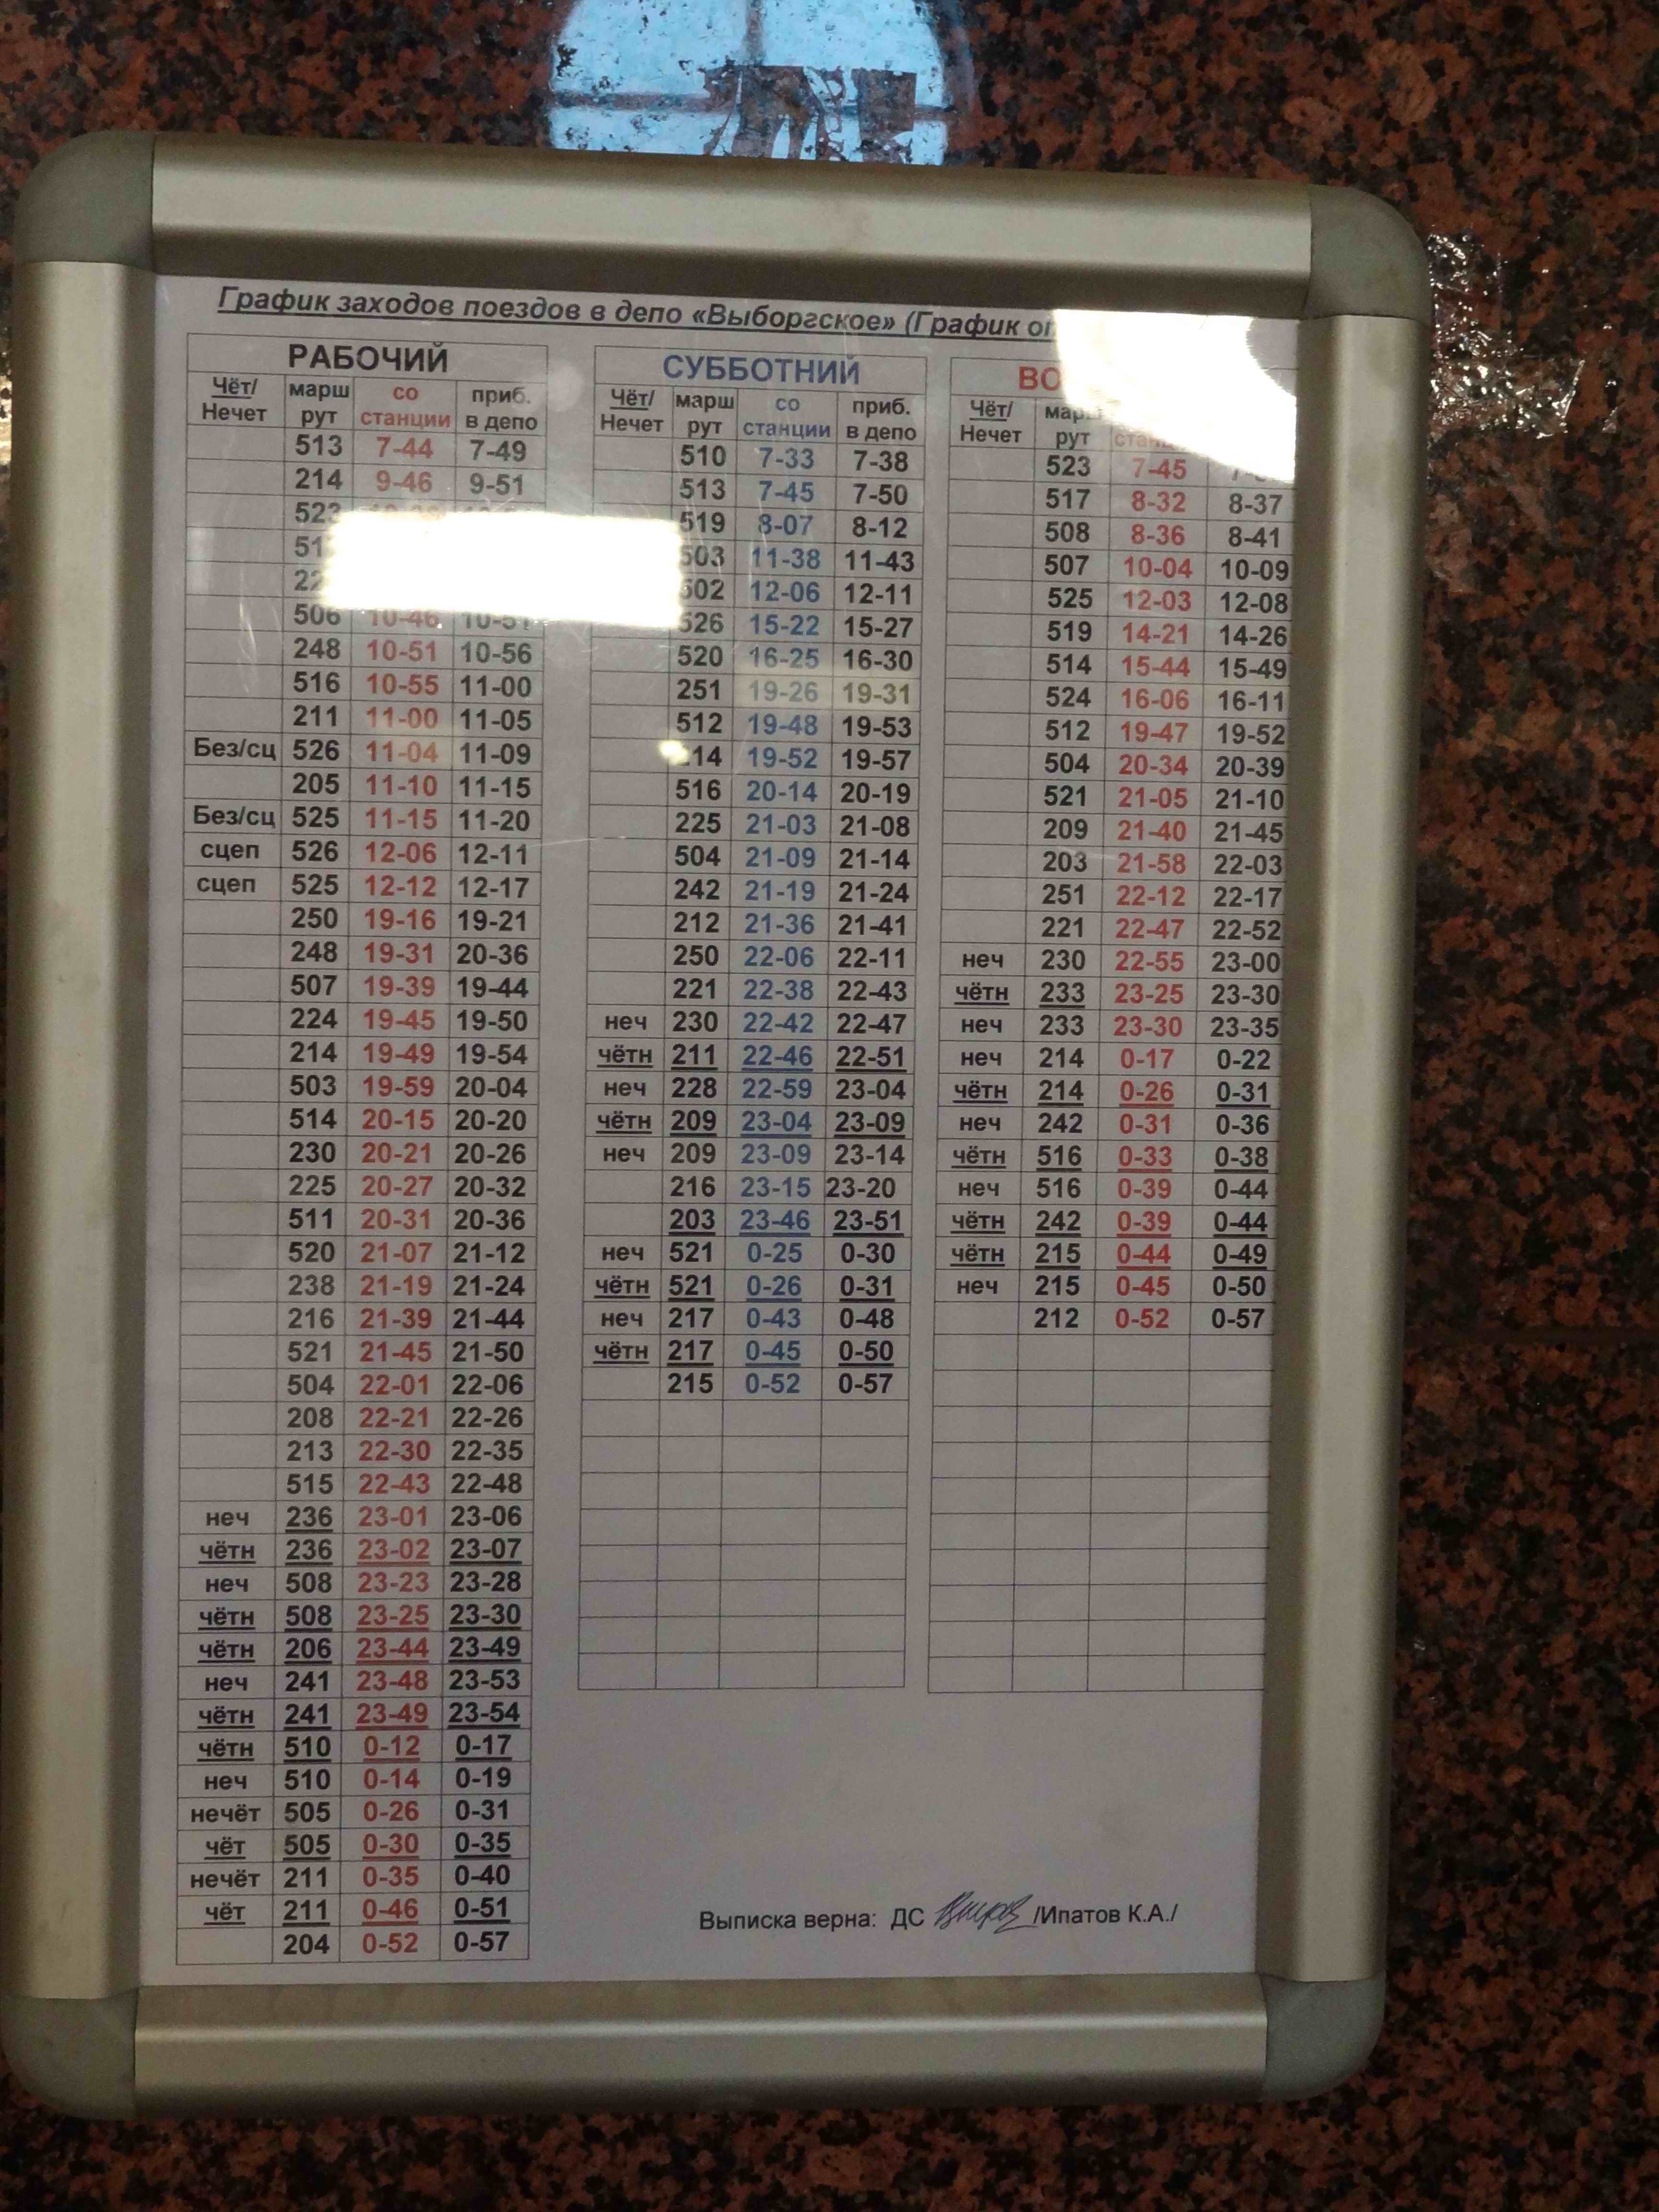 График заходов поездов в депо «Выборгское» (График
РАБОЧИЙ
Чёт/ Нечет марш рут со станции приб. в депо
513 7-44 7-49
214 9-46 9-51
523
506 10-46 10-51
248 10-51 10-56
516 10-55 11-00
211 11-00 11-05
Без/сц 526 11-04 11-09
205 11-10 11-15
Без/сц 525 11-15 11-20
сцеп 526 12-06 12-11
сцеп 525 12-12 12-17
250 19-16 19-21
248 19-31 20-36
507 19-39 19-44
224 19-45 19-50
214 19-49 19-54
503 19-59 20-04
514 20-15 20-20
230 20-21 20-26
225 20-27 20-32
511 20-31 20-36
520 21-07 21-12
238 21-19 21-24
216 21-39 21-44
521 21-45 21-50
504 22-01 22-06
208 22-21 22-26
213 22-30 22-35
515 22-43 22-48
неч 236 23-01 23-06
чётн 236 23-02 23-07
неч 508 23-23 23-28
чётн 508 23-25 23-30
чётн 206 23-44 23-49
неч 241 23-48 23-53
чётн 241 23-49 23-54
чётн 510 0-12 0-17
неч 510 0-14 0-19
нечёт 505 0-26 0-31
чёт 505 0-30 0-35
нечёт 211 0-35 0-40
чёт 211 0-46 0-51
204 0-52 0-57
СУББОТНИЙ
Чёт/ Нечет марш рут со станции приб. в депо
510 7-33 7-38
513 7-45 7-50
519 8-07 8-12
503 11-38 11-43
502 12-06 12-11
526 15-22 15-27
520 16-25 16-30
251 19-26 19-31
512 19-48 19-53
19-52 19-57
516 20-14 20-19
225 21-03 21-08
504 21-09 21-14
242 21-19 21-24
212 21-36 21-41
250 22-06 22-11
221 22-38 22-43
неч 230 22-42 22-47
чётн 211 22-46 22-51
неч 228 22-59 23-04
чётн 209 23-04 23-09
неч 209 23-09 23-14
216 23-15 23-20
203 23-46 23-51
неч 521 0-25 0-30
чётн 521 0-26 0-31
неч 217 0-43 0-48
чётн 217 0-45 0-50
215 0-52 0-57
Чёт/ Нечет марш рут
523 7-45
517 8-32 8-37
508 8-36 8-41
507 10-04 10-09
525 12-03 12-08
519 14-21 14-26
514 15-44 15-49
524 16-06 16-11
512 19-47 19-52
504 20-34 20-39
521 21-05 21-10
209 21-40 21-45
203 21-58 22-03
251 22-12 22-17
221 22-47 22-52
неч 230 22-55 23-00
чётн 233 23-25 23-30
неч 233 23-30 23-35
неч 214 0-17 0-22
чётн 214 0-26 0-31
неч 242 0-31 0-36
чётн 516 0-33 0-38
неч 516 0-39 0-44
чётн 242 0-39 0-44
чётн 215 0-44 0-49
неч 215 0-45 0-50
212 0-52 0-57
Выписка верна: ДС /Ипатов К.А./